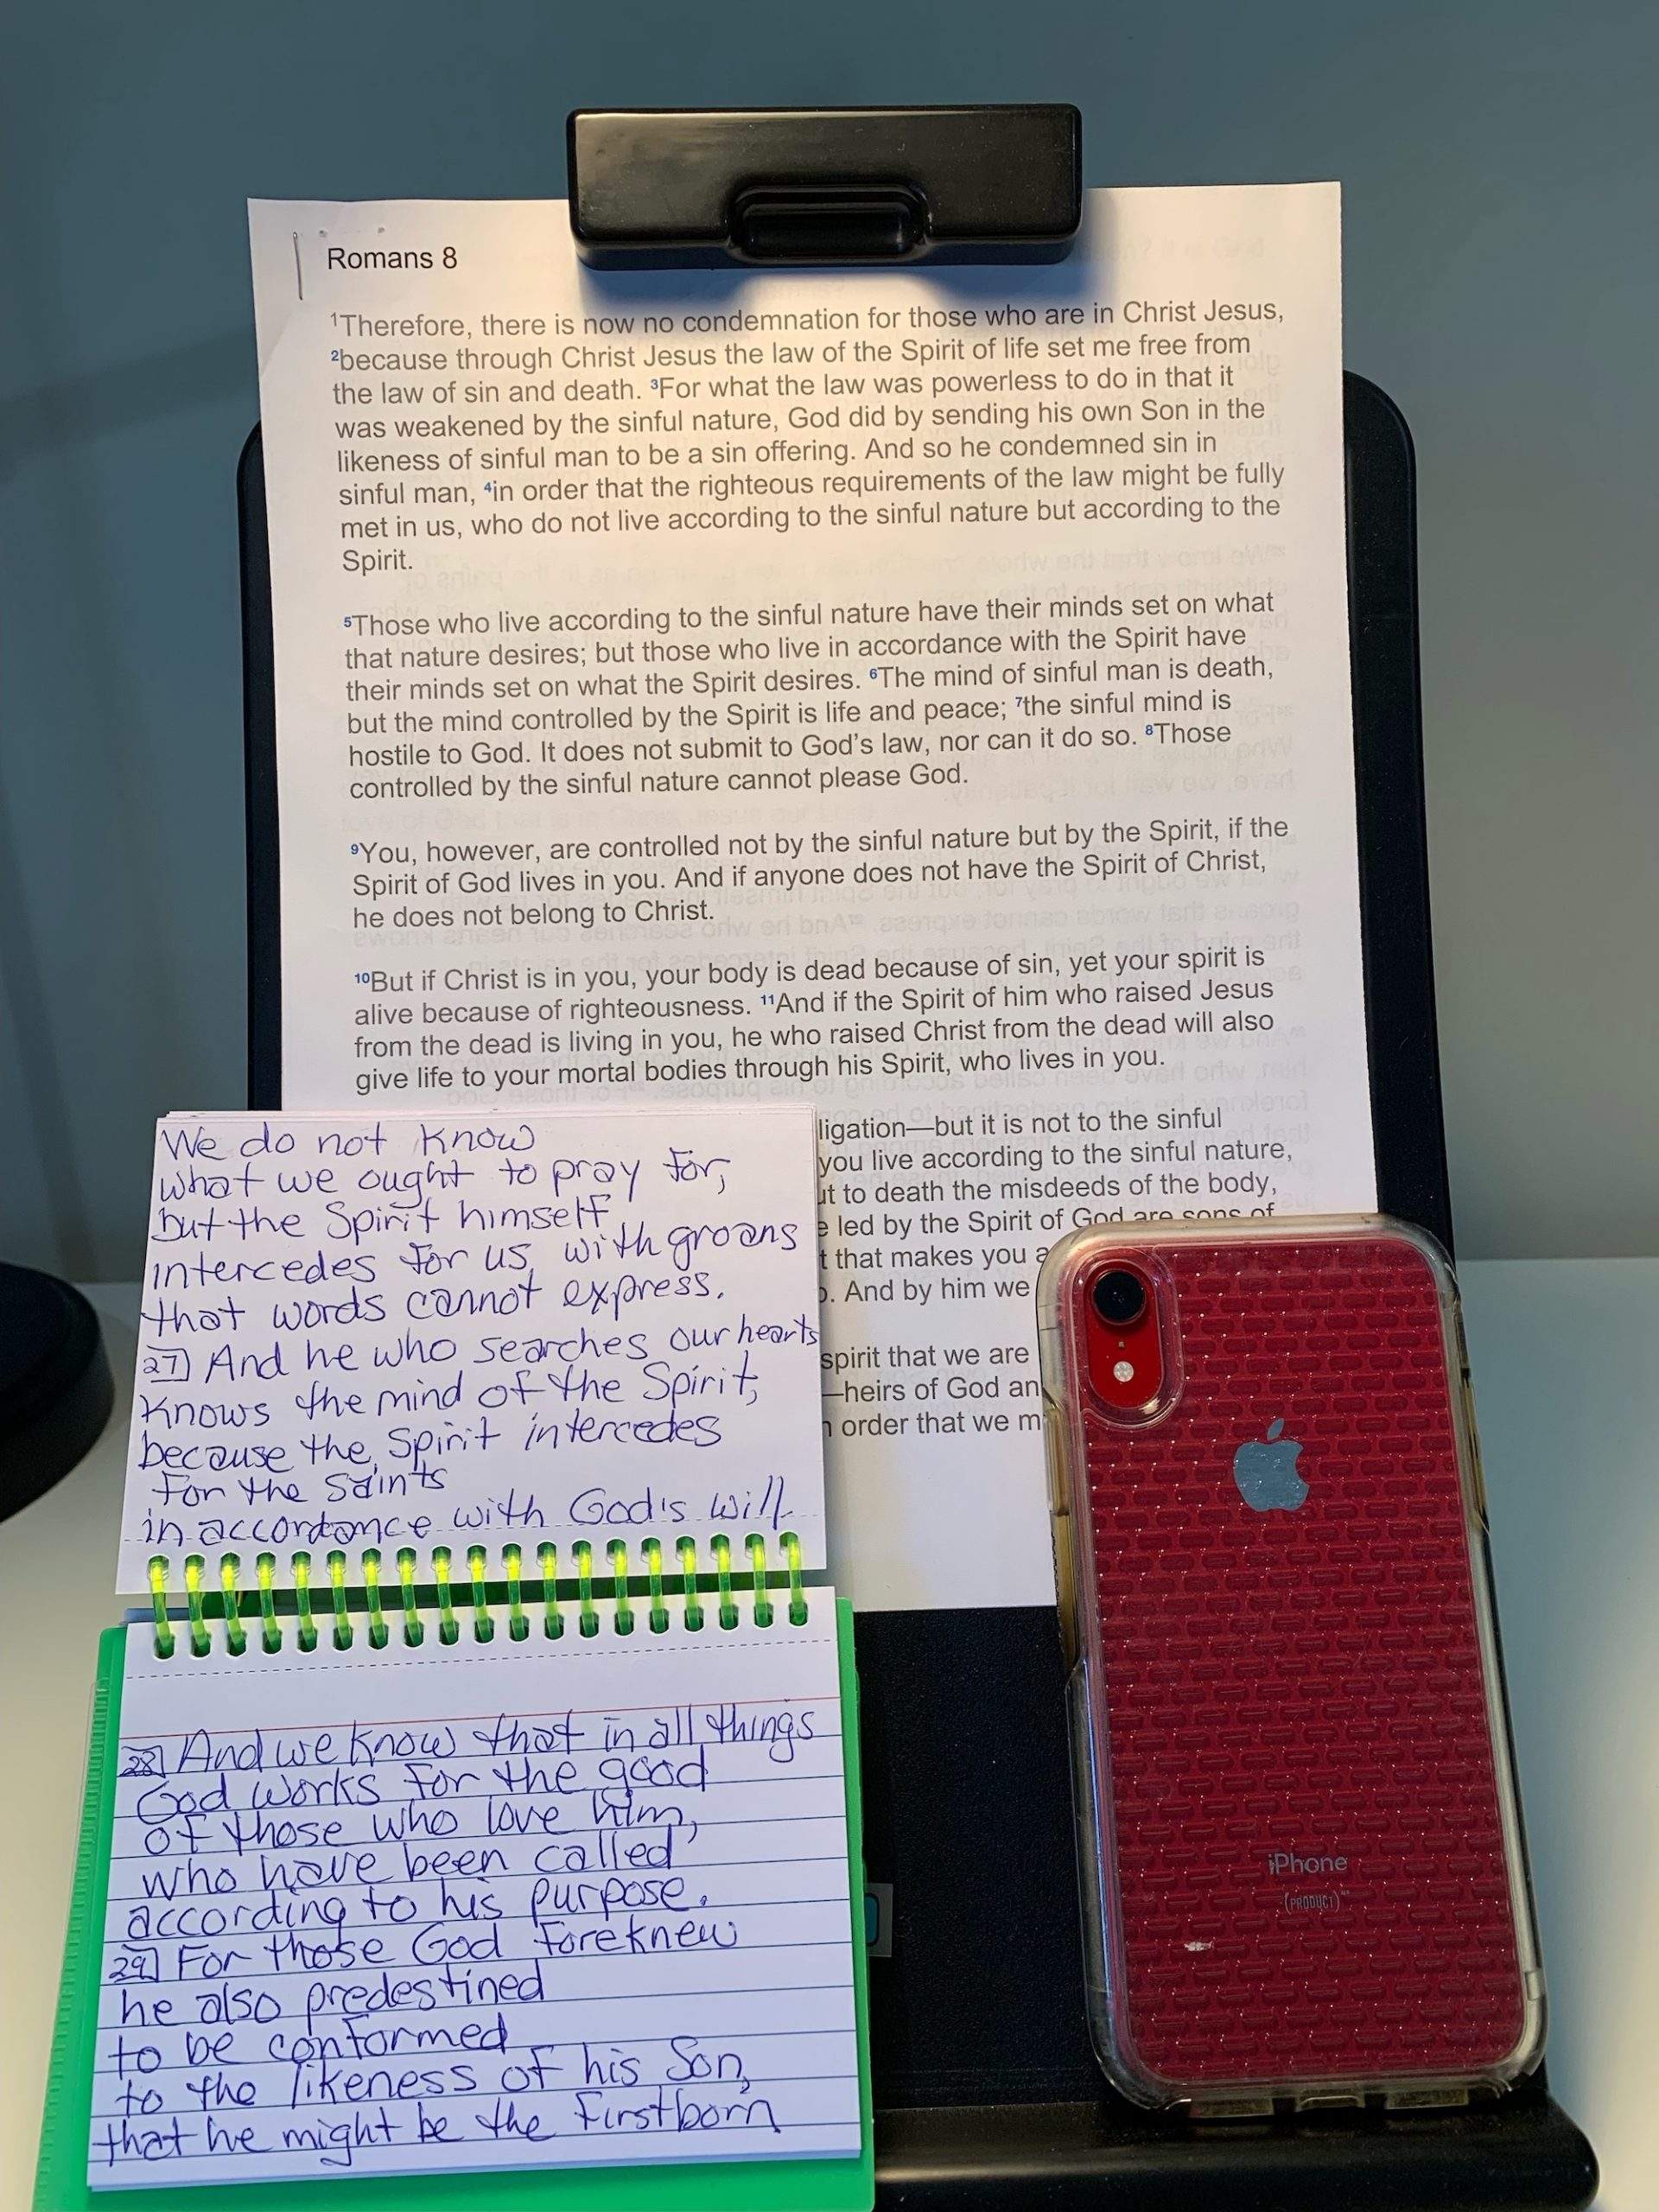 Romans 8
¹Therefore, there is now no condemnation for those who are in Christ Jesus,
²because through Christ Jesus the law of the Spirit of life set me free from
the law of sin and death. ³For what the law was powerless to do in that it
was weakened by the sinful nature, God did by sending his own Son in the
likeness of sinful man to be a sin offering. And so he condemned sin in
sinful man, ⁴in order that the righteous requirements of the law might be fully
met in us, who do not live according to the sinful nature but according to the
Spirit.
⁵Those who live according to the sinful nature have their minds set on what
that nature desires; but those who live in accordance with the Spirit have
their minds set on what the Spirit desires. ⁶The mind of sinful man is death,
but the mind controlled by the Spirit is life and peace; ⁷the sinful mind is
hostile to God. It does not submit to God's law, nor can it do so. ⁸Those
controlled by the sinful nature cannot please God.
⁹You, however, are controlled not by the sinful nature but by the Spirit, if the
Spirit of God lives in you. And if anyone does not have the Spirit of Christ,
he does not belong to Christ.
¹⁰But if Christ is in you, your body is dead because of sin, yet your spirit is
alive because of righteousness. ¹¹And if the Spirit of him who raised Jesus
from the dead is living in you, he who raised Christ from the dead will also
give life to your mortal bodies through his Spirit, who lives in you.
ligation—but it is not to the sinful
you live according to the sinful nature,
ut to death the misdeeds of the body,
e led by the Spirit of God are sons of
t that makes you a
. And by him we
spirit that we are
—heirs of God an
order that we m
We do not know
what we ought to pray for,
but the Spirit himself
intercedes for us with groans
that words cannot express.
27] And he who searches our hearts
knows the mind of the Spirit,
because the Spirit intercedes
for the saints
in accordance with God's will.
28] And we know that in all things
God works for the good
of those who love him,
who have been called
according to his purpose.
29] For those God foreknew
he also predestined
to be conformed
to the likeness of his Son,
that he might be the firstborn
iPhone
(PRODUCT)